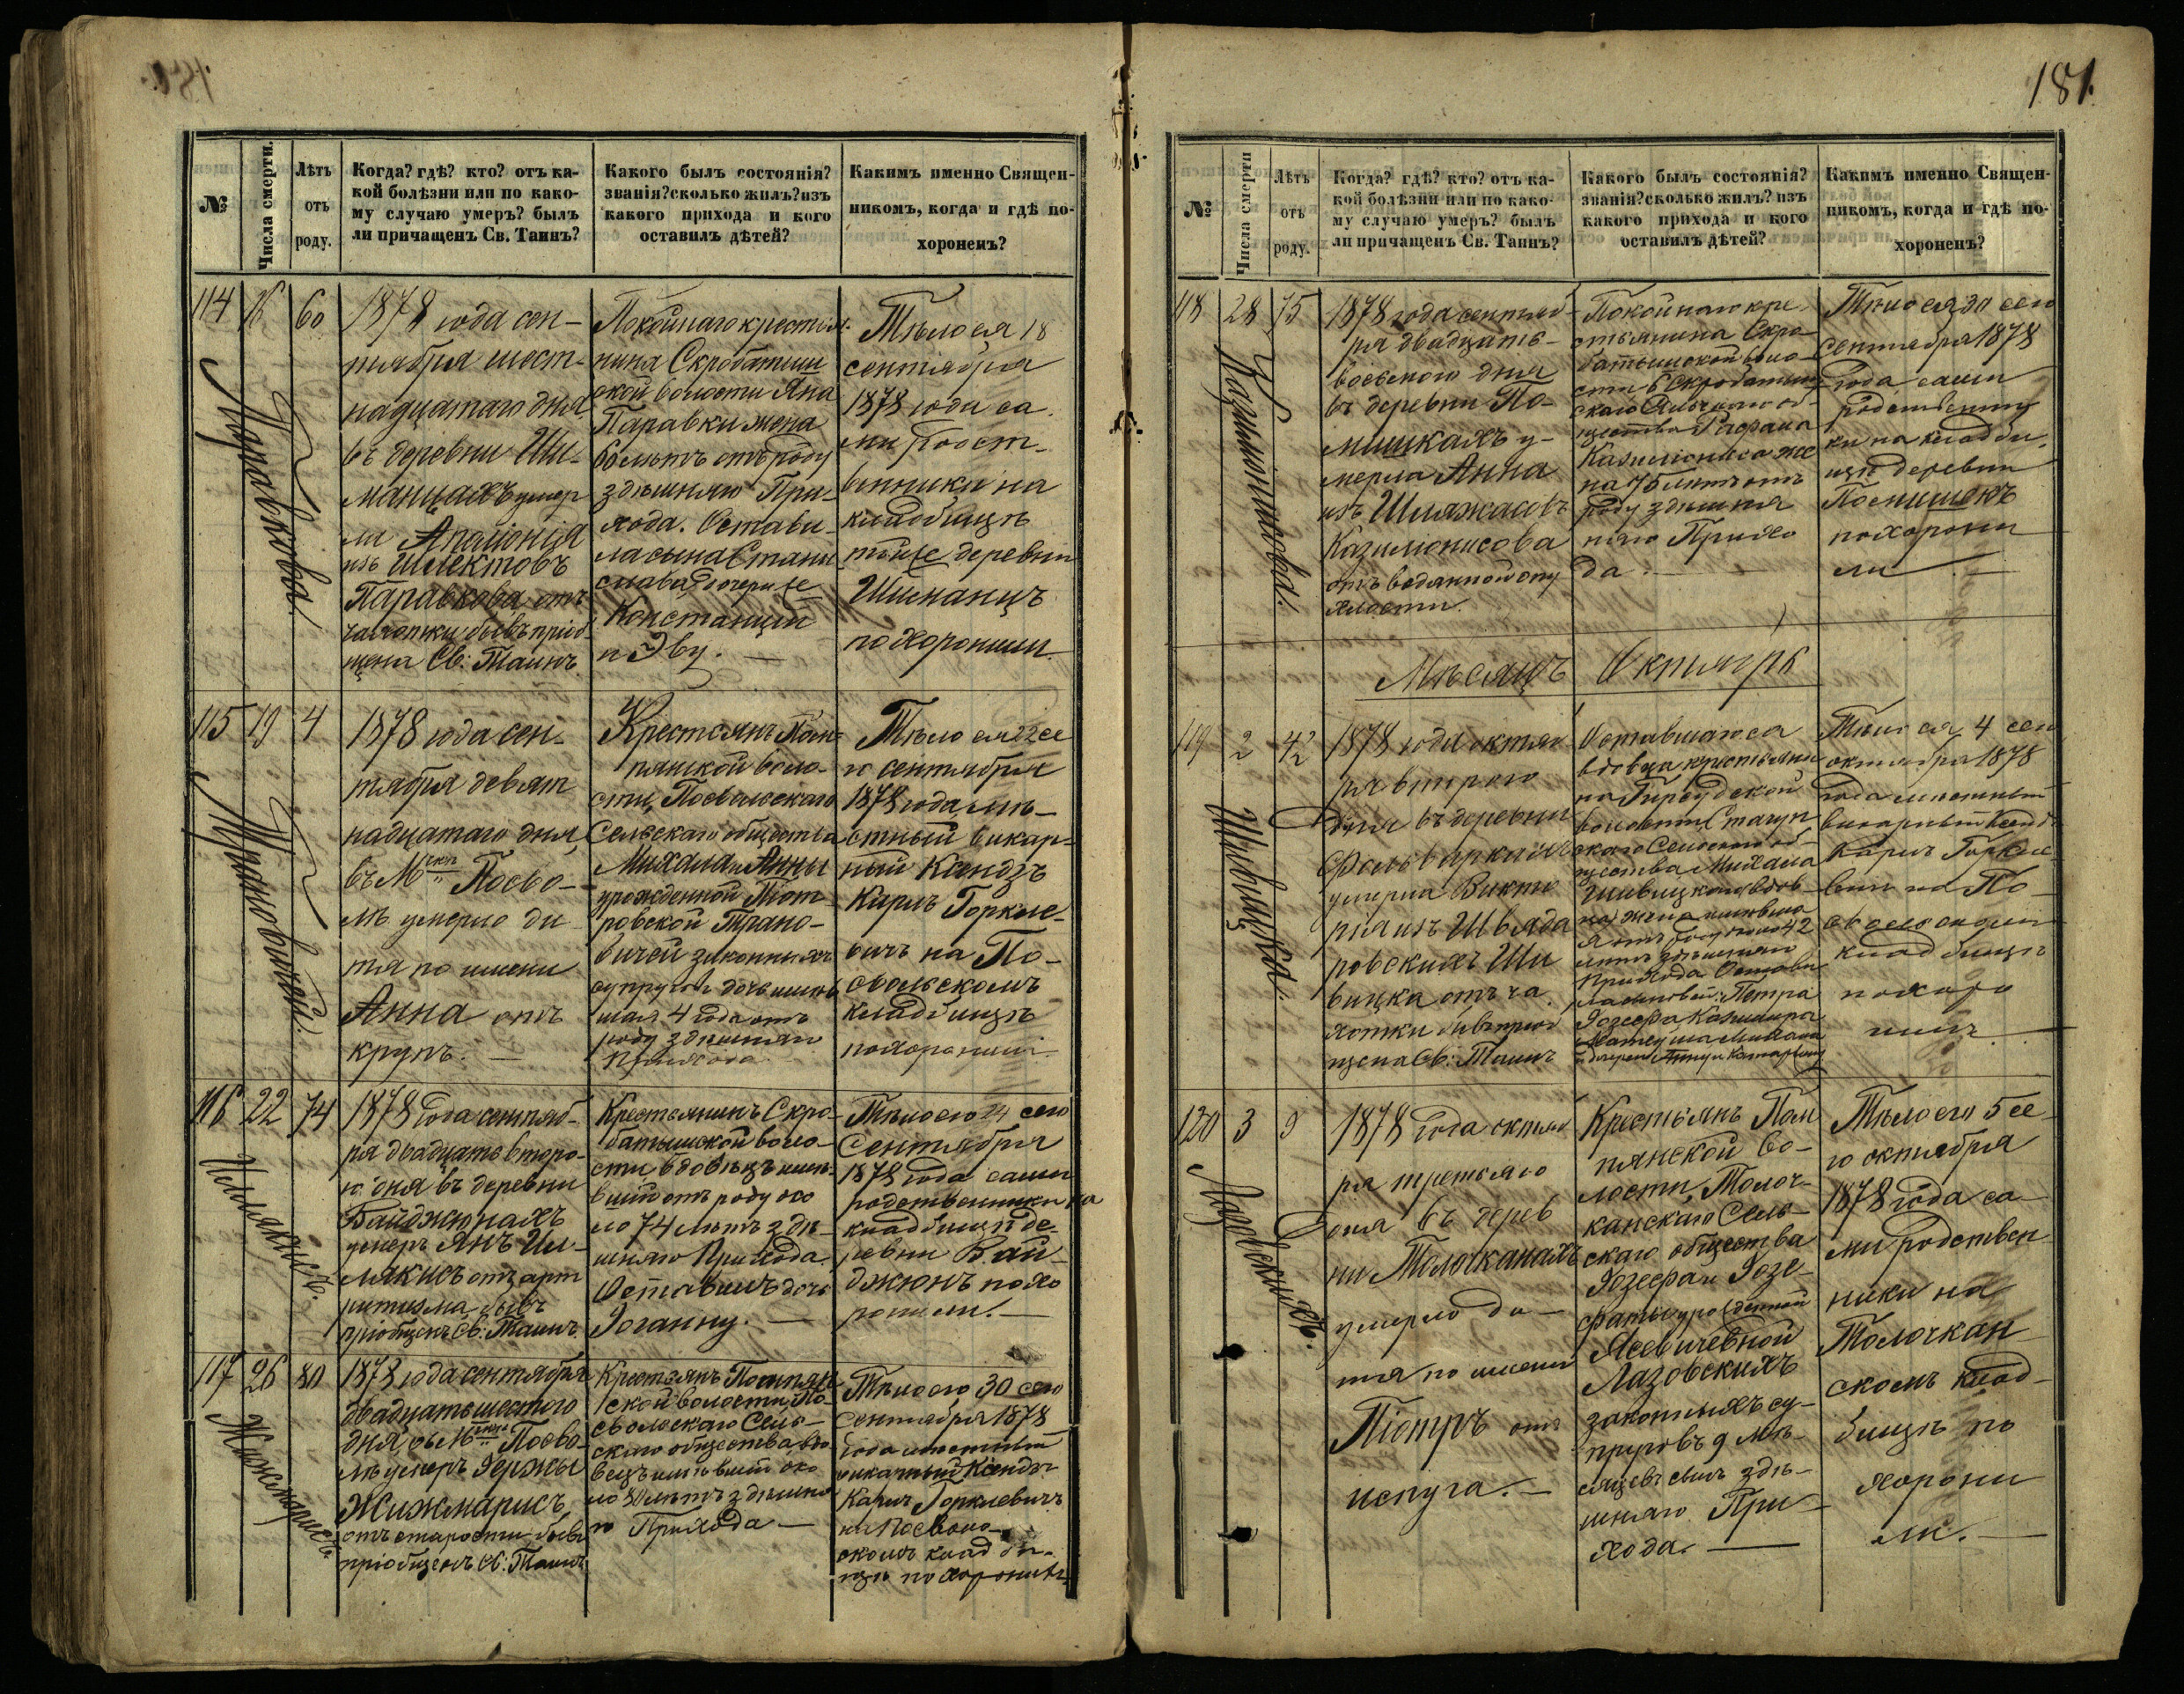 181.
№
Числа смерти.
Лѣтъ
отъ
роду.
Когда? гдѣ? кто? отъ ка-
кой болѣзни или по како-
му случаю умеръ? былъ
ли причащенъ Св. Таинъ?
Какого былъ состоянія?
званія? сколько жилъ? изъ
какого прихода и кого
оставилъ дѣтей?
Какимъ именно Священ-
никомъ, когда и гдѣ по-
хороненъ?
114
16
60
Паравкова.
1878 года сен-
тября шест-
надцатаго дня
въ деревни Ши-
манцахъ умер
ла Аполіонія
изъ
Паравкова отъ
чахотки бывъ пріоб-
щена Св: Таинъ.
Покойнаго крестья-
нина Скробатиш
ской волости Яна
Паравки жена
60 лѣтъ отъ роду
здѣшняго При-
хода. Остави-
ла сына Стани
слава дочери
Констанцію
и Эву. —
Тѣло ея 18
сентября
1878 года са-
ми родст-
венники на
кладбищѣ
тойже деревни
похоронили.
115
19
4
Трановичей.
1878 года сен-
тября девят
надцатаго дня,
въ Мѣстѣ Посво-
лѣ умерло ди
тя по имени
Анна отъ
крупъ. —
Крестьянъ Пом-
пянской воло-
сти, Посвольскаго
Сельскаго общества
Михала и Анны
урожденной Піот-
ровской Трано-
вичей законныхъ
супруговъ дочь имѣв
шая 4 года отъ
роду здѣшняго
Прихода.
Тѣло ея 22 се
го сентября
1878 года мѣ-
стный викар-
ный Ксендзъ
Карлъ Горкле-
вичъ на По-
свольскомъ
кладбищѣ
похоронилъ.
116
22
74
1878 года сентяб-
ря двадцать второ-
го дня въ деревни
Байджюнахъ
умеръ Янъ Им-
лякисъ отъ арт
ритизма бывъ
пріобщенъ Св: Таинъ
Крестьянинъ Скро-
батишской воло-
сти вдовецъ имѣ-
вшій отъ роду око
ло 74 лѣтъ здѣ-
шняго Прихода.
Оставилъ дочь
Іоганну. —
Тѣло его 24 сего
Сентября
1878 года сами
родственники на
кладбищѣ де-
ревни Бай-
джюнъ похо
ронили. —
117
26
80
Жижмарисъ.
1878 года сентября
двадцать шестого
дня, въ Мѣстѣ Посво-
лѣ умеръ Іержы
Жижмарисъ
отъ старости бывъ
пріобщенъ Св: Таинъ
Крестьянъ Помпян
ской волости, По-
свольскаго Сель-
скаго общества, вдо
вецъ имѣвшій око
ло 80 лѣтъ здѣшня
го Прихода —
Тѣло его 30 сего
Сентября 1878
года мѣстный
викарный Ксендзъ
Карлъ Горклевичъ
на Посволь-
скомъ кладби-
щѣ похоронилъ.
№
Числа смерти
Лѣтъ
отъ
роду.
Когда? гдѣ? кто? отъ ка-
кой болѣзни или по како-
му случаю умеръ? былъ
ли причащенъ Св. Таинъ?
Какого былъ состоянія?
званія? сколько жилъ? изъ
какого прихода и кого
оставилъ дѣтей?
Какимъ именно Священ-
никомъ, когда и гдѣ по-
хороненъ?
118
28
75
Казиліонисова.
1878 года сентяб-
ря двадцать-
восьмого дня
въ деревни По-
мишкахъ у-
мерла Анна
изъ
Казиліонисова
отъ водянной опу
хлости.
Покойнаго кре-
стьянина Скро-
батишской воло-
сти Скробатиш-
скаго Сельскаго об-
щества Рафала
Казиліониса же
на 75 лѣтъ отъ
роду здѣшня
няго Прихо
да. —
Тѣло ея 30 сего
Сентября 1878
года сами
родственни
ки на кладби-
щѣ деревни
похорони
ли. —
Мѣсяцъ Октябрь
119
2
42
Шивицка.
1878 года октяб
ря второго
дня въ деревни
Фольваркахъ
умерла Викто
рія изъ Швяда
ровскихъ Ши
вицка отъ ча
хотки бывъ пріоб
щена Св: Таинъ
Оставшагося
вдовца крестьяни
на
волости,
скаго Сельскаго об-
щества Михала
Шивицкаго
жена имѣвшая
отъ роду около 42
лѣтъ здѣшняго
Прихода Остави
ла сыновей: Петра
Іозефа Казимира
Матеуша Михала
и дочерей Анну и Катарину
Тѣло ея 4 сего
октября 1878
года мѣстный
викарный Ксендзъ
Карлъ Горкле
вичъ на По-
свольскомъ
кладбищѣ
похоро
нилъ.
120
3
9
Лазовскихъ.
1878 года октяб
ря третьяго
дня въ дерев
ни Толочканахъ
умерло ди-
тя по имени
Піотръ отъ
испуга. —
Крестьянъ Пом
пянской Во-
лости, Толоч-
канскаго Сель-
скаго общества
Іозефа и Іозе-
фаты урожденной
Лазовскихъ
законныхъ су-
пруговъ 9 мѣ-
сяцевъ сынъ здѣ-
шняго При-
хода. —
Тѣло его 5 се
го октября
1878 года са-
ми родствен
ники на
Толочкан
скомъ клад-
бищѣ по
хорони
ли. —